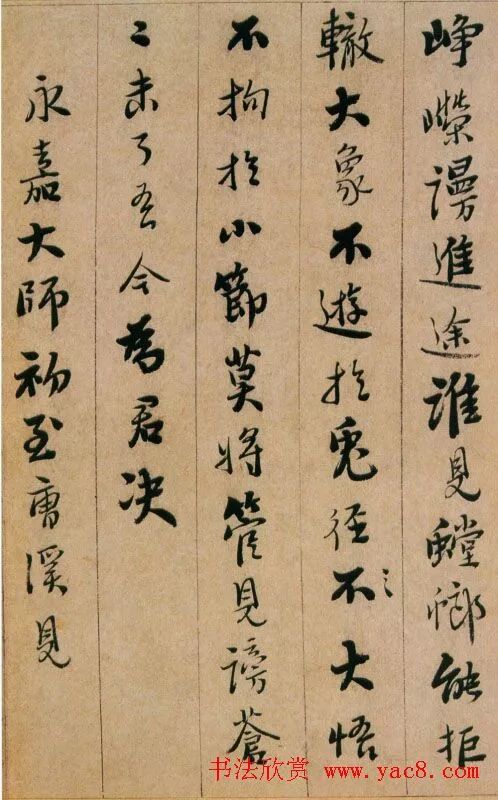 崢嶸謾進途誰見螳螂能拒
轍大象不遊於兔徑不大悟
不拘於小節莫將管見謗蒼
〻未了吾今為君决
永嘉大師初至曹溪見
书法欣赏 www.yac8.com